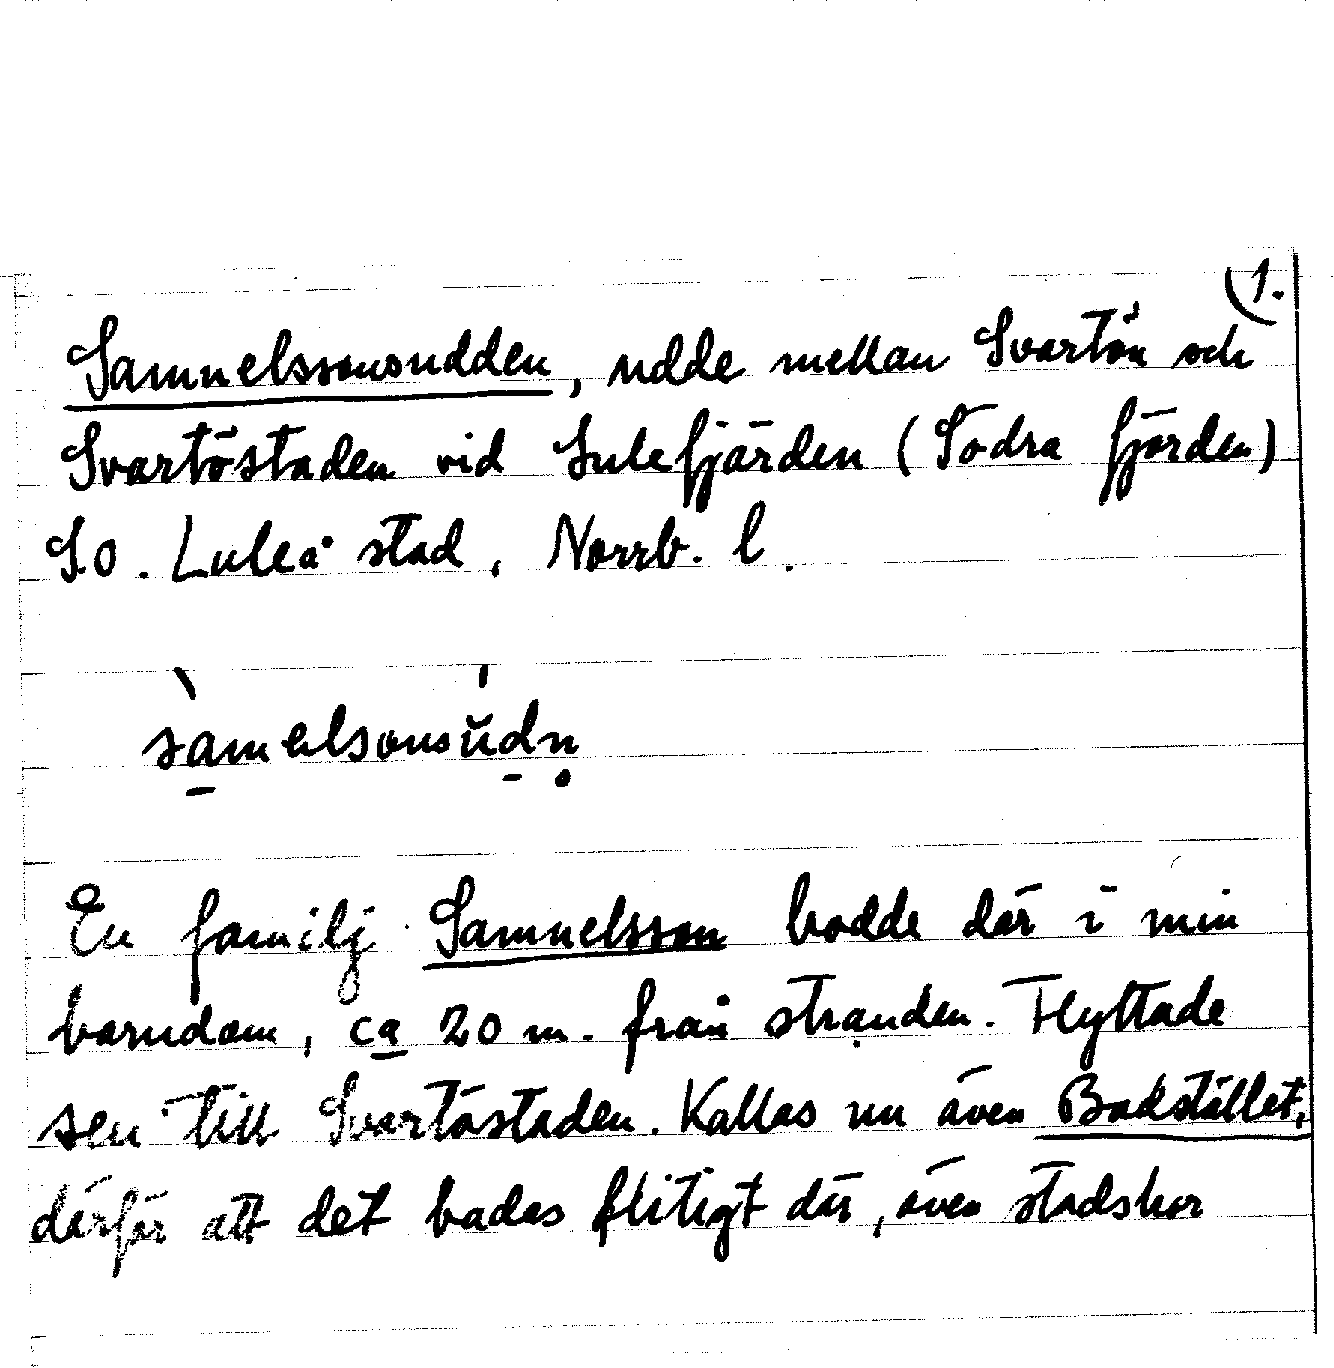 1.
Samuelssonsudden, udde mellan Svartön och
Svartöstaden vid Lulefjärden (Södra fjärden)
S.O. Luleå stad, Norrb. l.
sàmelsonsúdṇ
En familj Samuelsson bodde där i min
barndom, ca 20 m. från stranden. Flyttade
sen till Svartöstaden. Kallas nu även Badstället,
därför att det badas flitigt där, även stadsbor